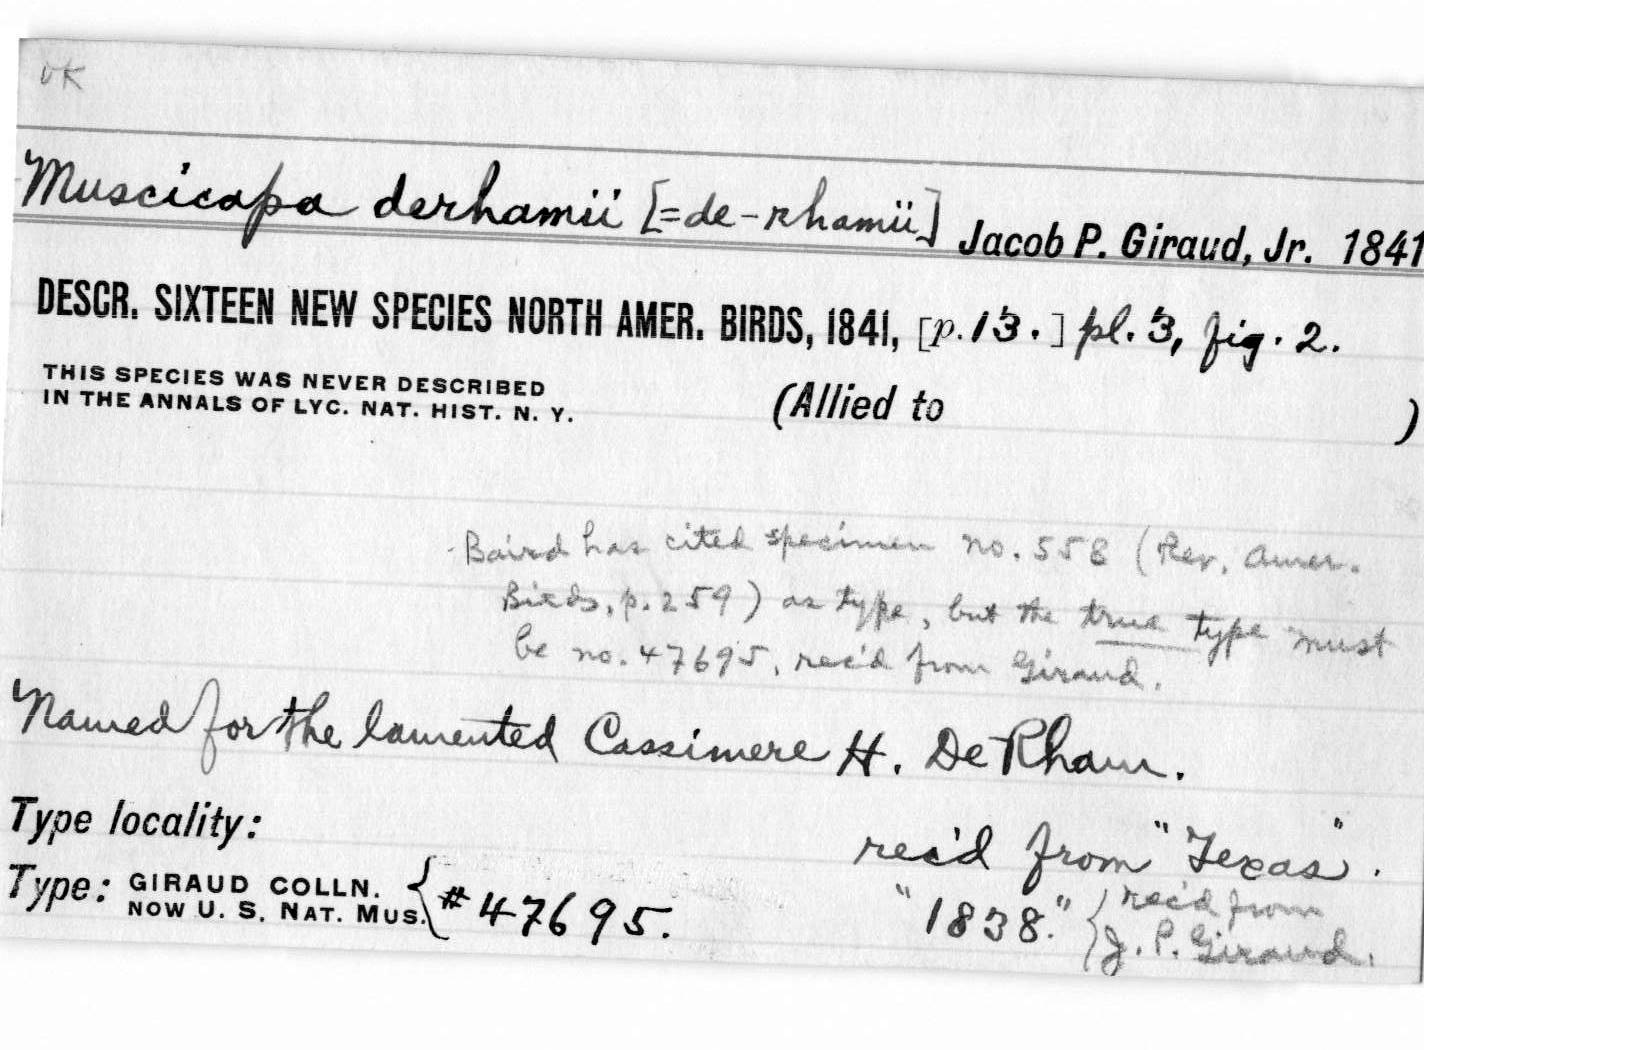 OK
Muscicapa derhamii [=de-rhamii] Jacob P. Giraud, Jr. 1841
DESCR. SIXTEEN NEW SPECIES NORTH AMER. BIRDS, 1841, [p. 13.] pl. 3, fig. 2.
THIS SPECIES WAS NEVER DESCRIBED
IN THE ANNALS OF LYC. NAT. HIST. N. Y.
(Allied to )
Baird has cited specimen no. 558 (Rev. Amer.
Birds, p. 259) as type, but the true type must
be no. 47695, rec'd from Giraud.
Named for the lamented Cassimere H. DeRham.
Type locality: rec'd from "Texas".
Type: GIRAUD COLLN.
NOW U. S. NAT. MUS. { #47695. "1838." { rec'd from
J. P. Giraud.